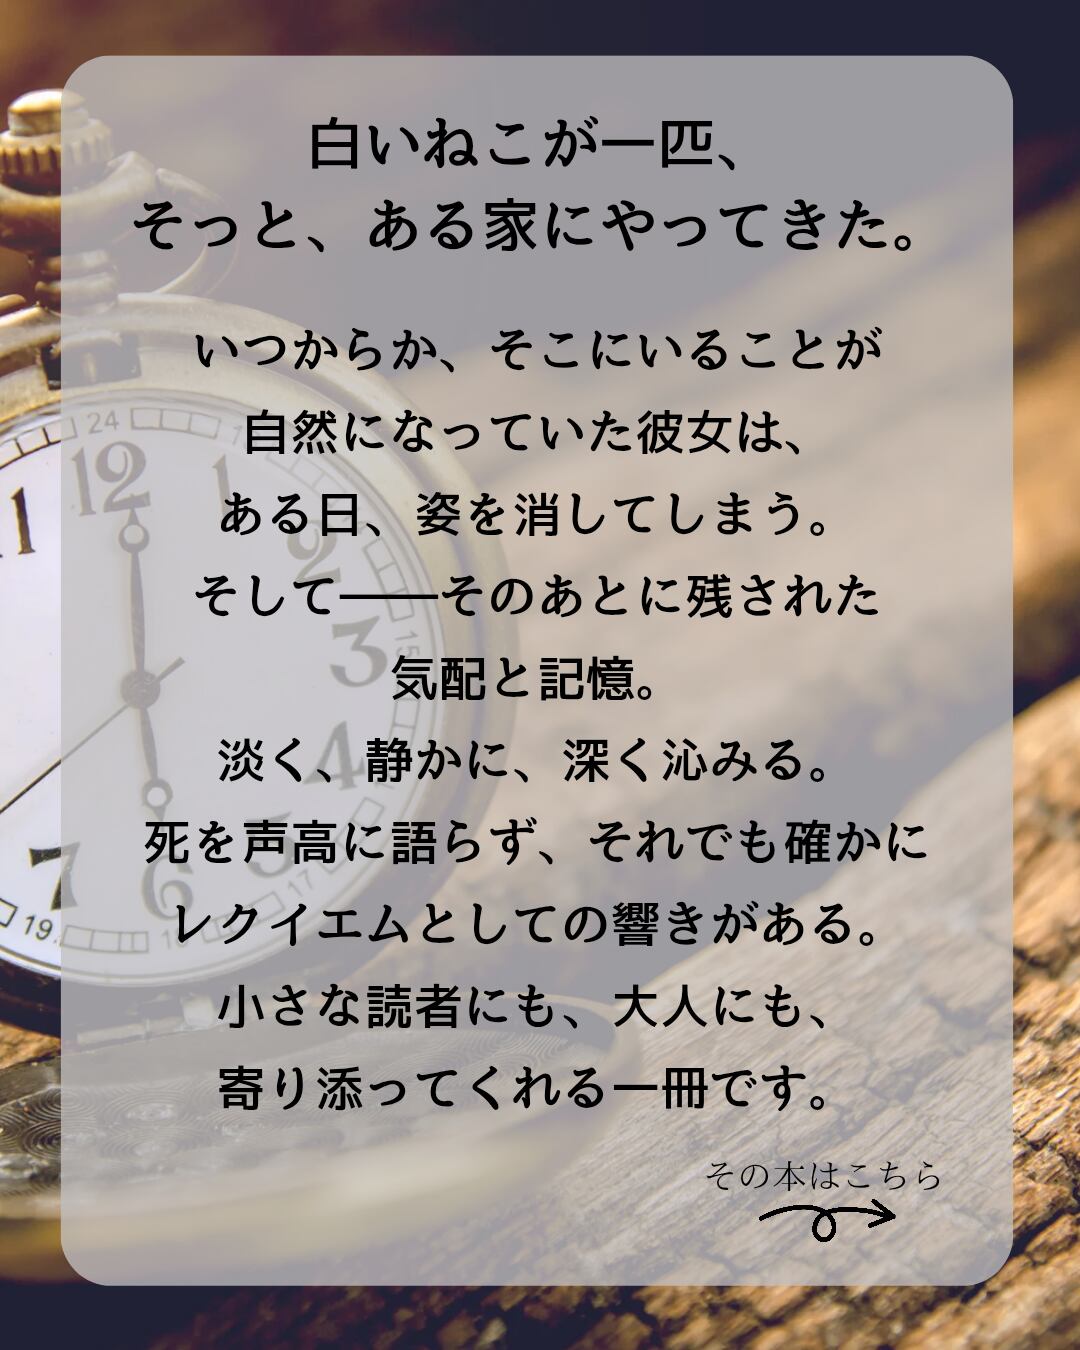 白いねこが一匹、
そっと、ある家にやってきた。
いつからか、そこにいることが
自然になっていた彼女は、
ある日、姿を消してしまう。
そして――そのあとに残された
気配と記憶。
淡く、静かに、深く沁みる。
死を声高に語らず、それでも確かに
レクイエムとしての響きがある。
小さな読者にも、大人にも、
寄り添ってくれる一冊です。
その本はこちら
24
12
1
11
2
3
15
4
5
17
6
7
19